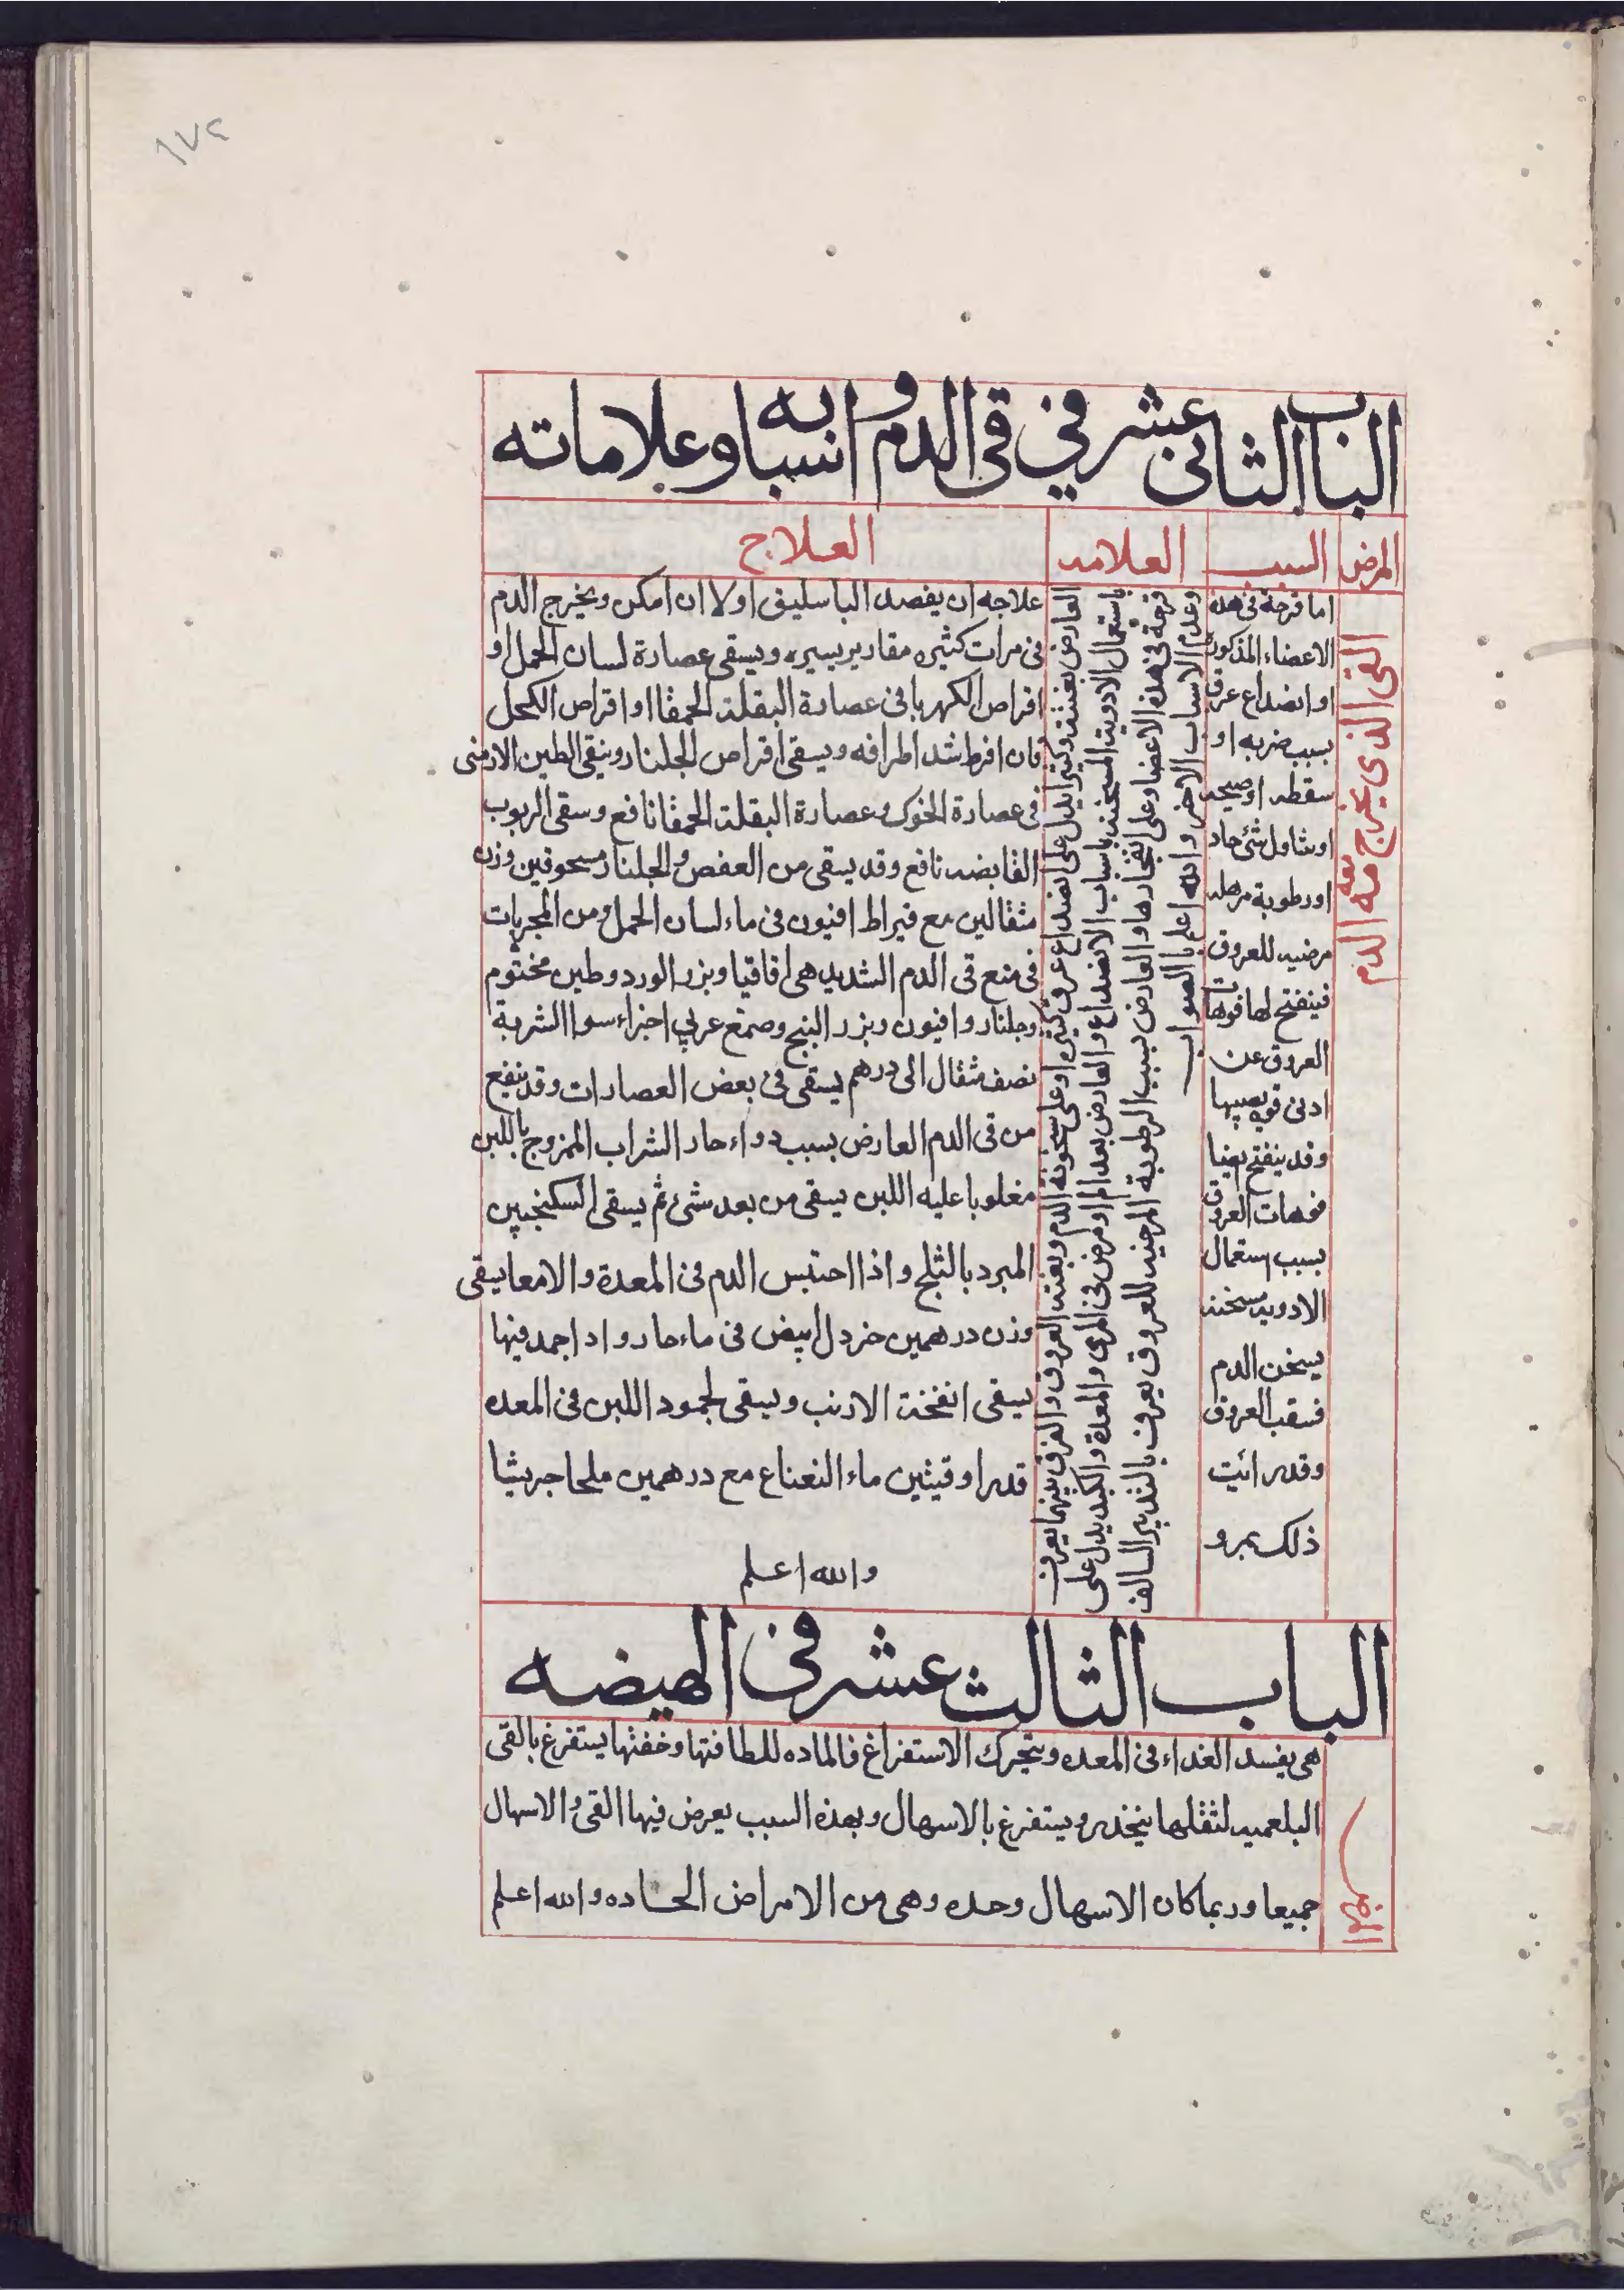 ١٧٢
الباب الثانى عشر في قى الدم و اسبابه وعلاماته
المرض
السبب
العلامه
العلاج
القى الذى يخرج معه الدم
اما قرحة فى هذه
الاعضاء المذكورة
او انصداع عرق
بسبب ضربه او
سقطه او صيحه
او شئ حاد
او رطوبة
مرخيه للعروق
فينفتح لها
العروق عن
ادنى
وقد ينفتح ايضا
فوهات العروق
بسبب استعمال
الادويه مسخنه
يسخن الدم
العروق
وقد رائيت
ذلك بمرو
العارض بغتة وكثيرا يدل على انصداع عروق كثيره او على سخونة الدم والفرق بينهما يعرف
باستعمال الادوية المسخنه باسباب الانصداع والعارض بعد الم او مرض فى المرى والمعدة والكبد يدل على
قرحة فى هذه الاعضا وعلى انفجارها والعارض بسبب الرطوبة المرخيه للعروق يعرف بالتدبير السالف
وعدم الاسباب الاخر والله اعلم بالصواب
علاجه ان يفصد الباسليق اولا ان امكن ويخرج الدم
فى مرات كثيره مقادير يسيره ويسقى عصارة لسان الحمل او
اقراص الكهربا فى عصارة البقلة الحمقا او اقراص الكحل
فان افرط شد اطرافه ويسقى اقراص الجلنار ويسقى الطين الارمنى
فى عصارة الخوك وعصارة البقلة الحمقا نافع وسقى الربوب
القابضه نافع وقد يسقى من العفص والجلنار مسحوقين وزن
مثقالين مع قيراط افيون فى ماء لسان الحمل ومن المجربات
فى منع قى الدم الشديد هى اقاقيا وبزر الورد وطين مختوم
وجلنار وافيون وبزر البنج وصمغ عربي اجزاء سوا الشربة
نصف مثقال الى درهم يسقى فى بعض العصارات وقد ينفع
من قى الدم العارض بسبب دواء حار الشراب الممزوج باللبن
مغلوبا عليه اللبن يسقى من بعد شئ ثم يسقى السكنجبين
المبرد بالثلج واذا احتبس الدم فى المعدة والامعا يسقى
وزن درهمين خردل ابيض فى ماء حار واد اجمد فيها
يسقى انفخة الارنب ويسقى لجمود اللبن فى المعده
قدر اوقيتين ماء النعناع مع درهمين ملحا جريشا
والله اعلم
الباب الثالث عشر فى الهيضه
هى يفسد الغداء فى المعده ويتحرك الاستفراغ فالماده للطافتها وخفتها يستفرغ بالقى
البلغميه لثقلها ينحدر ويستفرغ بالاسهال وبهذه السبب يعرض فيها القى والاسهال
جميعا وربما كان الاسهال وحده وهى من الامراض الحاده والله اعلم